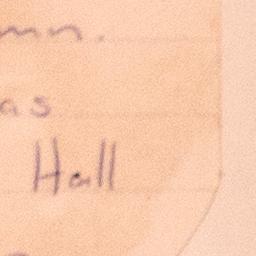 mn.
as
Hall